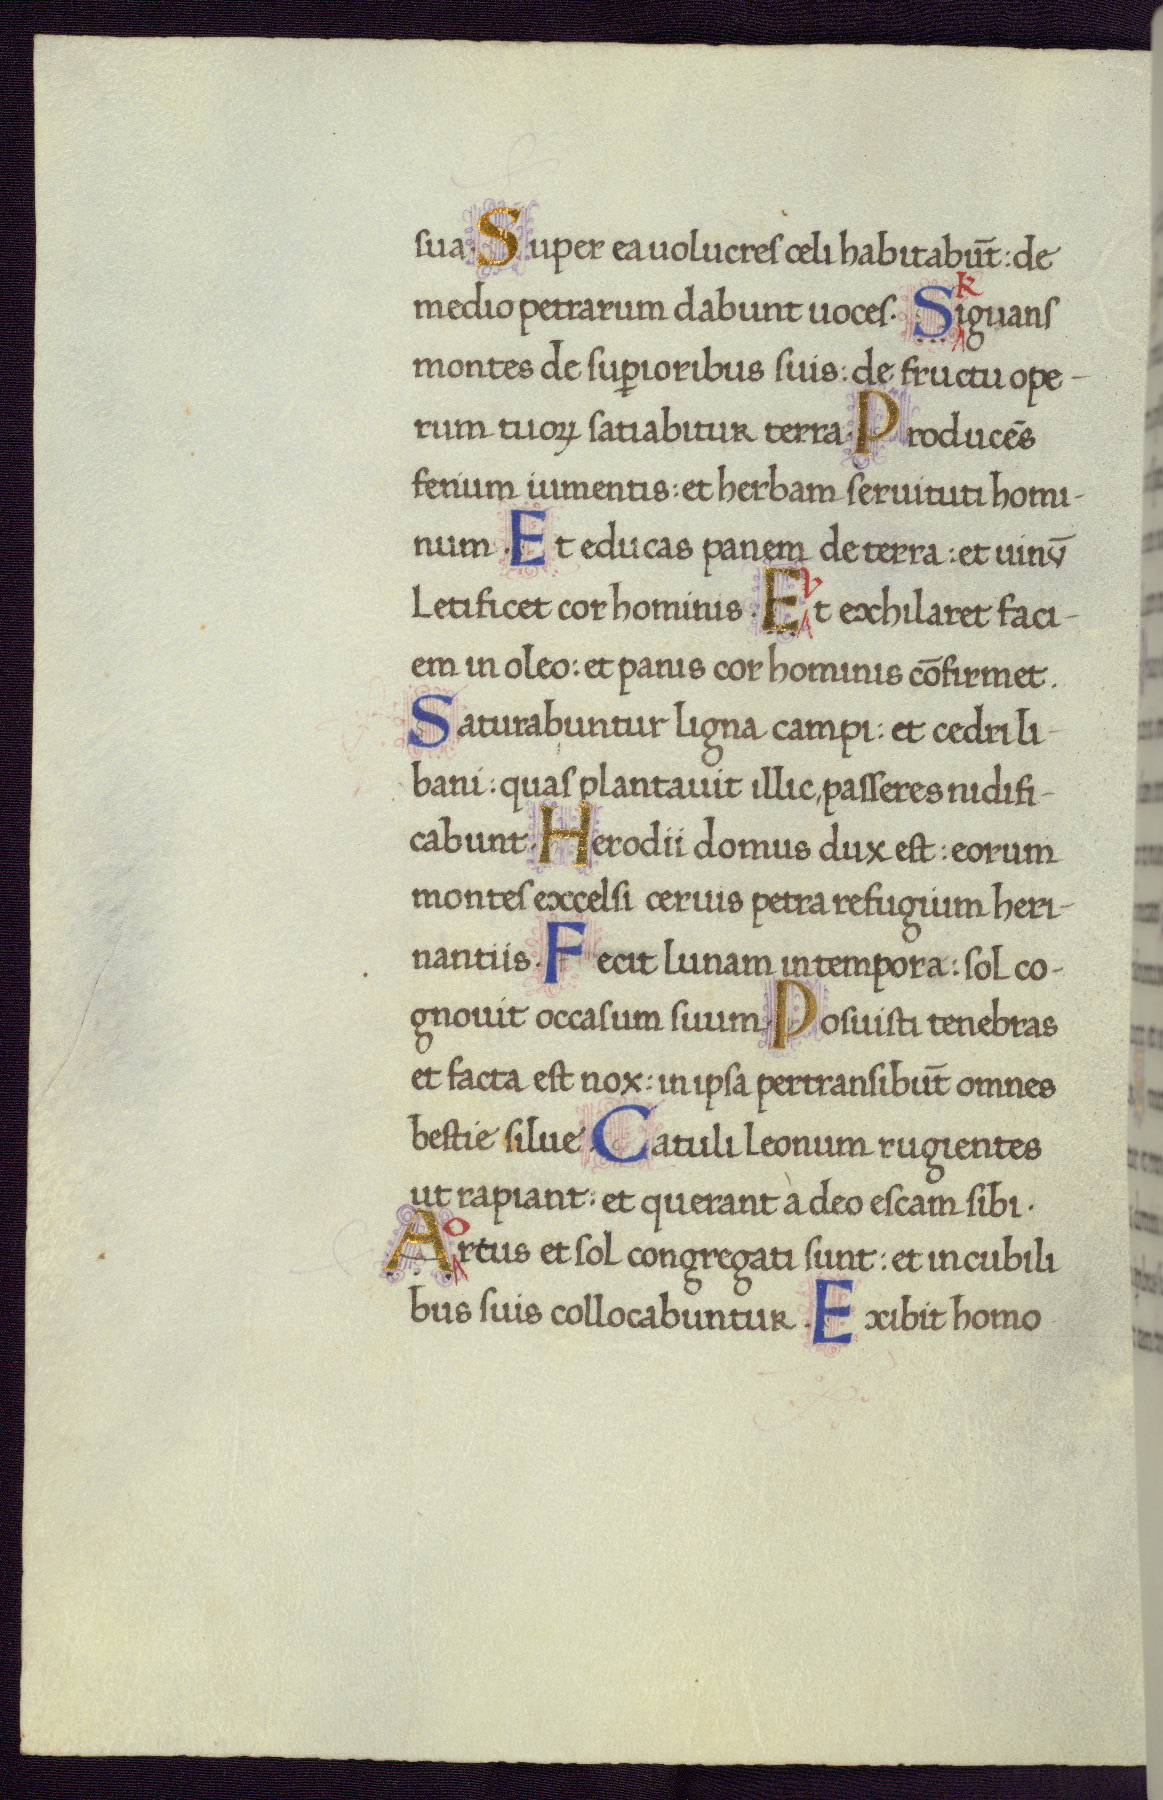 sua. Super ea uolucres celi habitabūt: de
medio petrarum dabunt uoces. Siguans
montes de suꝑioribus suis: de fructu ope-
rum tuoꝝ satiabitur terra. Producēs
fenum iumentis: et herbam seruituti homi-
num. Et educas panem de terra: et uinū
Letificet cor hominis. Et exhilaret faci-
em in oleo: et panis cor hominis cōfirmet.
Saturabuntur ligna campi: et cedri li-
bani: quas plantauit illic, passeres nidifi-
cabunt. Herodii domus dux est: eorum
montes excelsi ceruis petra refugium heri-
nantiis. Fecit lunam in tempora: sol co-
gnouit occasum suum. Posuisti tenebras
et facta est nox: in ipsa pertransibūt omnes
bestie silue. Catuli leonum rugientes
ut rapiant: et querant à deo escam sibi.
Artus et sol congregati sunt: et in cubili
bus suis collocabuntur. Exibit homo